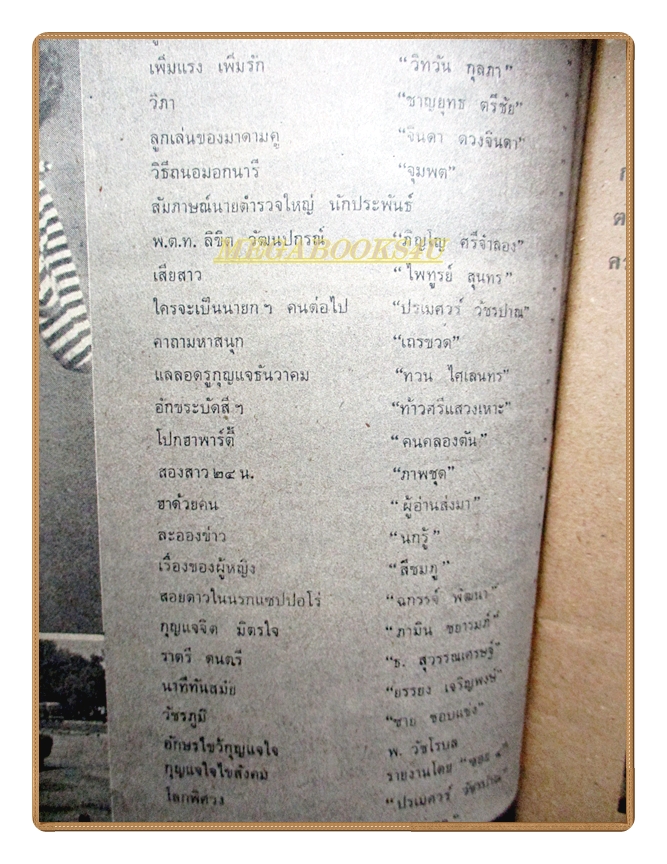 เพิ่มแรง เพิ่มรัก "วิทวัน กุลภา"
วิภา "ชาญยุทธ ตรีชัย"
ลูกเล่นของมาดามคู "จินดา ดวงจินดา"
วิธีถนอมอกนารี "จุมพต"
สัมภาษณ์นายตำรวจใหญ่ นักประพันธ์
พ.ต.ท. ลิขิต วัฒนปกรณ์ "ภิญโญ ศรีจำลอง"
MEGABOOKS4U
เสียสาว "ไพฑูรย์ สุนทร"
ใครจะเป็นนายก ฯ คนต่อไป "ปรเมศวร์ วัชรปาณ"
คาถามหาสนุก "เถรขวด"
แลลอดรูกุญแจธันวาคม "ทวน ไศเลนทร"
อักขระบัดสี ฯ "ท้าวศรีแสวงเหาะ"
โปกฮาพาร์ตี้ "คนคลองตัน"
สองสาว ๒๔ น. "ภาพชุด"
ฮาด้วยคน "ผู้อ่านส่งมา"
ละอองข่าว "นกรู้"
เรื่องของผู้หญิง "สีชมภู"
สอยดาวในนรกแซปปอโร่ "ฉกรรจ์ พัฒนา"
กุญแจจิต มิตรใจ "ภามิน ชยารมภ์"
ราตรี ดนตรี "ธ. สุวรรณเศรษฐ์"
นาทีทันสมัย "ยรรยง เจริญพงษ์"
วัชรภูมิ "ชาย ชอบแซง"
อักษรไขว้กุญแจใจ พ. วัชโรบล
กุญแจไขสังคม รายงานโดย "ซอย
โลกพิศวง "ปรเมศวร์ วัชรปาณ"